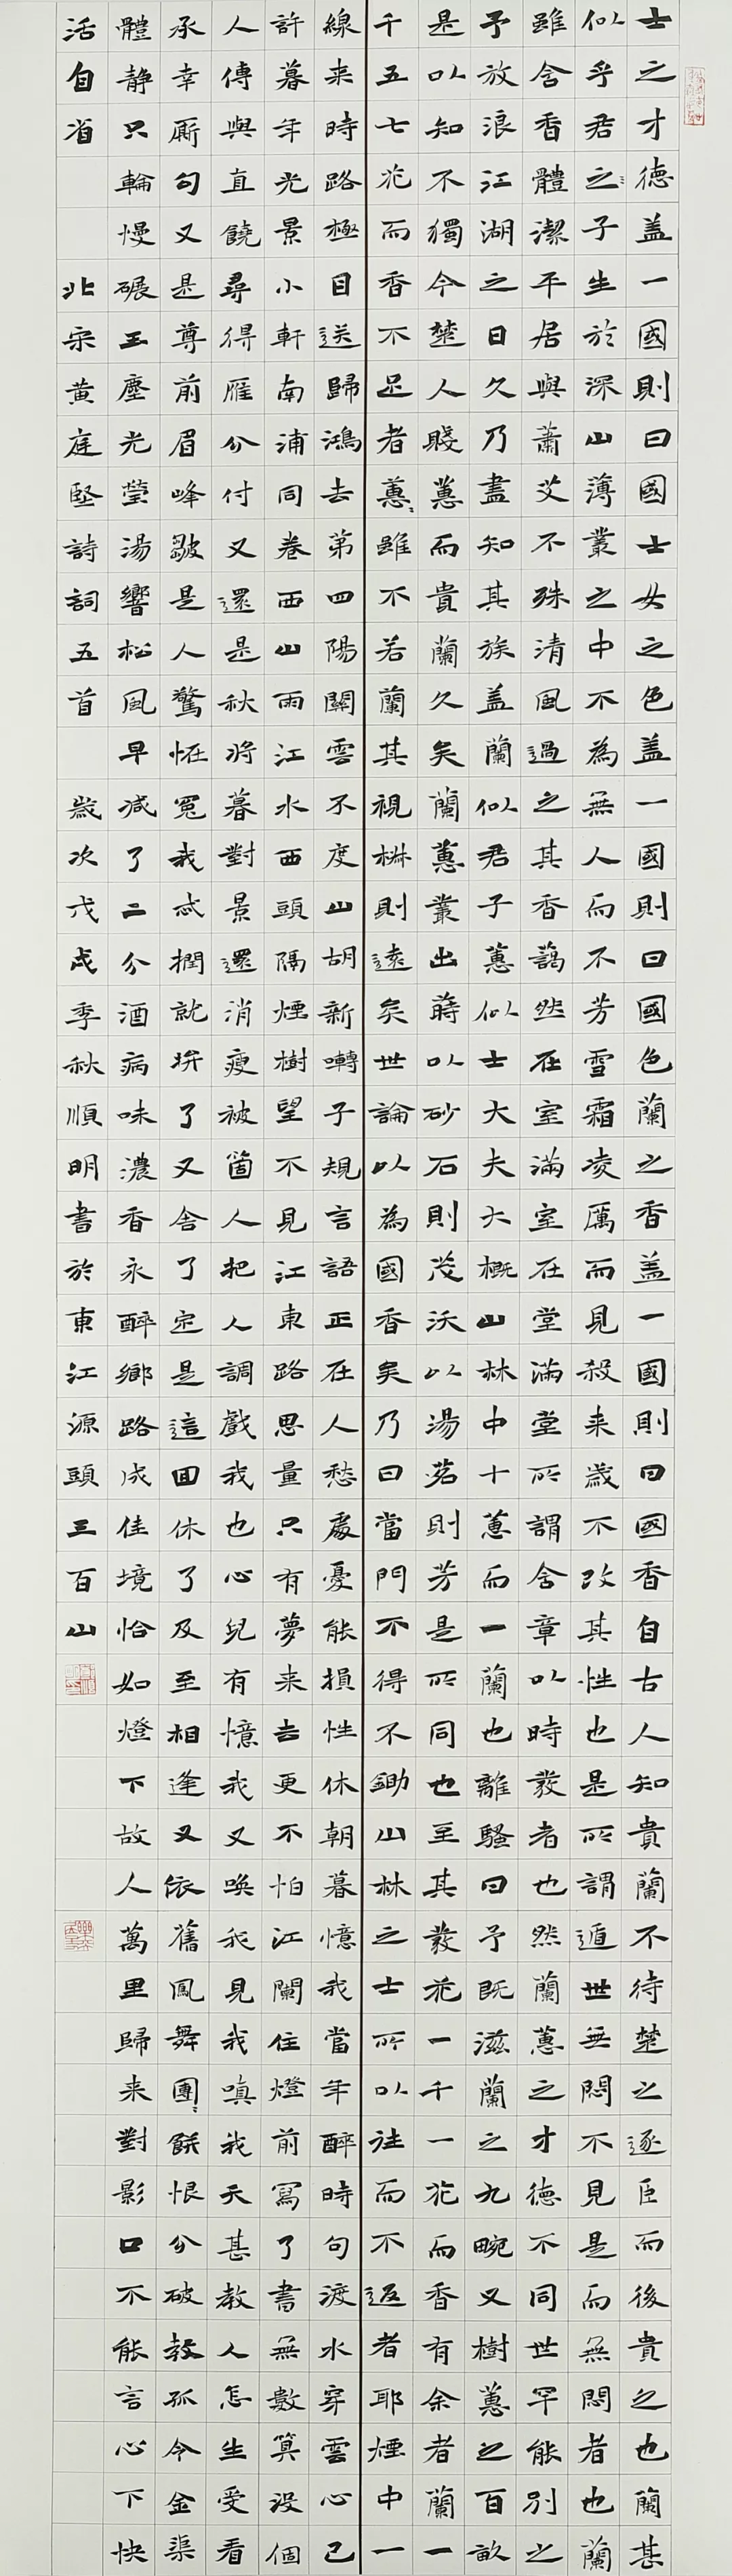 士之才德盖一國則曰國士女之色盖一國則曰國色蘭之香盖一國則曰國香自古人知貴蘭不待楚之逐臣而後貴之也蘭甚
似乎君之〻子生於深山薄叢之中不為無人而不芳雪霜凌厲而見殺来歲不改其性也是所謂遁世無悶不見是而無悶者也蘭
雖含香體潔平居與蕭艾不殊清風過之其香藹然在室滿室在堂滿堂所謂含章以時發者也然蘭蕙之才德不同世罕能別之
予放浪江湖之日久乃盡知其族盖蘭似君子蕙似士大夫大概山林中十蕙而一蘭也離騷曰予既滋蘭之九畹又樹蕙之百畝
是以知不獨今楚人賤蕙而貴蘭久矣蘭蕙叢出蒔以砂石則茂沃以湯茗則芳是所同也至其發花一千一花而香有余者蘭一
千五七花而香不足者蕙〻雖不若蘭其視椒則遠矣世論以為國香矣乃曰當門不得不鋤山林之士所以往而不返者耶煙中一
線来時路極目送歸鴻去第四陽關雲不度山胡新囀子規言語正在人愁處憂能損性休朝暮憶我當年醉時句渡水穿雲心已
許暮年光景小軒南浦同卷西山雨江水西頭隔煙樹望不見江東路思量只有夢来去更不怕江闌住燈前寫了書無數算没個
人傳與直饒尋得雁分付又還是秋將暮對景還消瘦被箇人把人調戲我也心兒有憶我又唤我見我嗔我天甚教人怎生受看
承幸厮勾又是尊前眉峰皺是人驚怪冤我忒撋就拚了又舍了定是這囬休了及至相逢又依舊鳳舞團〻餅恨分破教孤令金渠
體静只輪慢碾玉塵光瑩湯響松風早減了二分酒病味濃香永醉鄉路成佳境恰如燈下故人萬里歸来對影口不能言心下快
活自省 北宋黄庭堅詩詞五首 歲次戊戌季秋順明書於東江源頭三百山